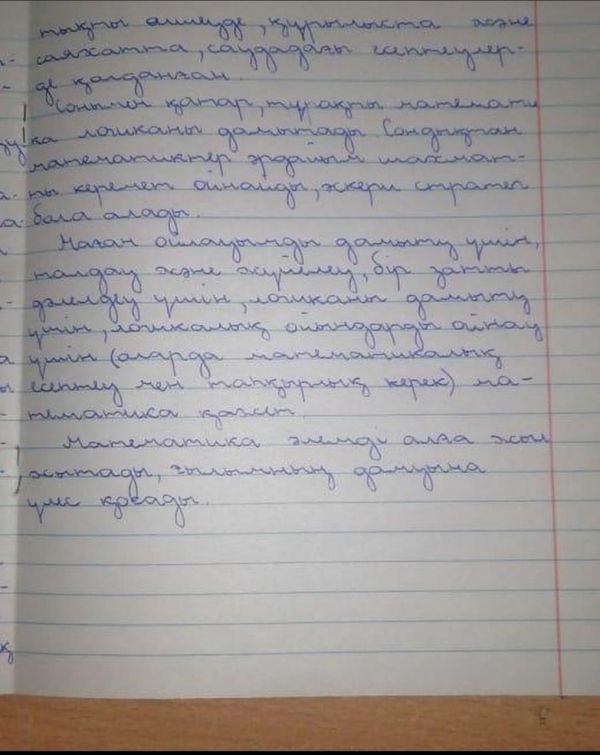 тықты өлшеуде, құрылыста және
саяхатта, саудадағы есептеулер-
де қолданған.
Сонымен қатар, тұрақты математи
ка логиканы дамытады. Сондықтан
математиктер әрдайым шахмат-
ты керемет ойнайды, әскери стратег
бола алады.
Маған ойлауымды дамыту үшін,
талдау және жүйелеу, бір затты
дәлелдеу үшін, логиканы дамыту
үшін, логикалық ойындарды ойнау
үшін (аларда математикалық
есептеу мен тапқырлық керек) ма-
тематика қажет.
Математика әлемді алға жыл
жытады, ғылымның дамуына
үлес қосады.